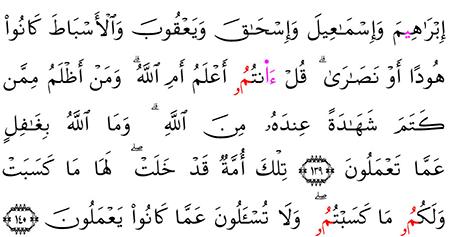 إِبۡرَٰهِيمَ وَإِسۡمَٰعِيلَ وَإِسۡحَٰقَ وَيَعۡقُوبَ وَٱلۡأَسۡبَاطَ كَانُواْ
هُودًا أَوۡ نَصَٰرَىٰۗ قُلۡ ءَا۬نتُمُۥٓ أَعۡلَمُ أَمِ ٱللَّهُۗ وَمَنۡ أَظۡلَمُ مِمَّن
كَتَمَ شَهَٰدَةً عِندَهُۥ مِنَ ٱللَّهِۗ وَمَا ٱللَّهُ بِغَٰفِلٍ
عَمَّا تَعۡمَلُونَ ١٣٩ تِلۡكَ أُمَّةٞ قَدۡ خَلَتۡۖ لَهَا مَا كَسَبَتۡ
وَلَكُمُۥ مَا كَسَبۡتُمُۥۖ وَلَا تُسۡـَٔلُونَ عَمَّا كَانُواْ يَعۡمَلُونَ ١٤٠